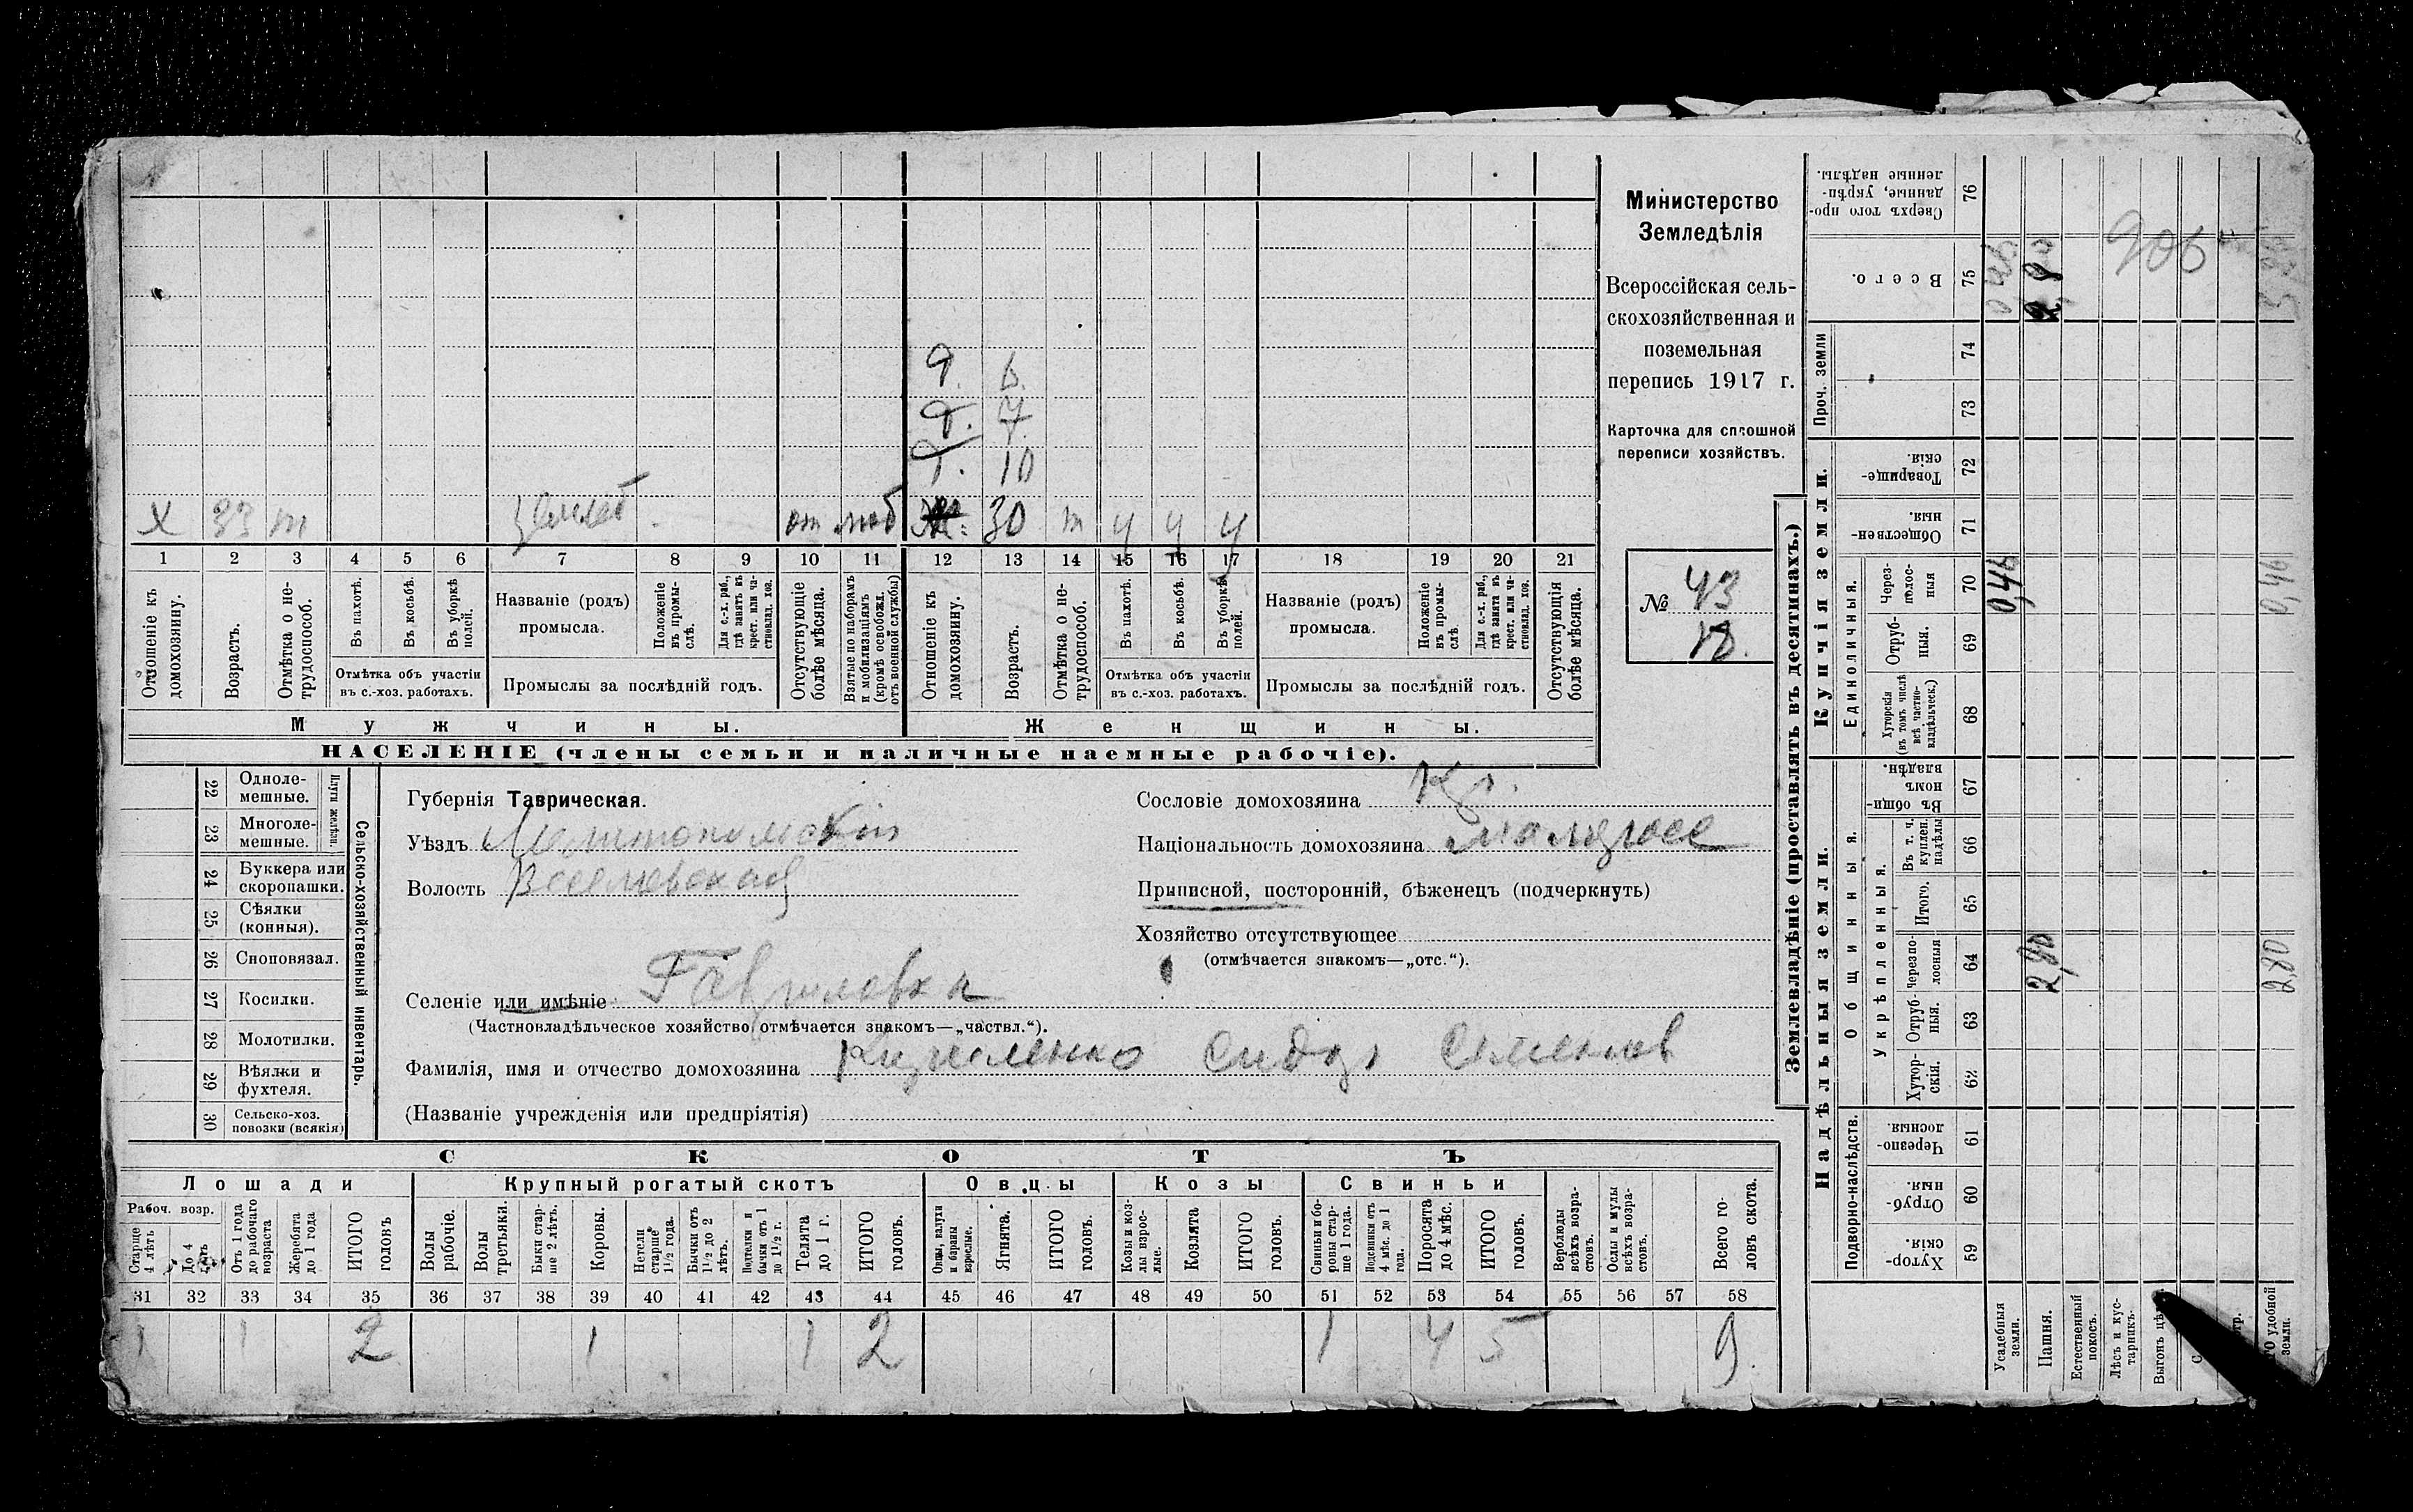 Министерство
Земледѣлія
Всероссійская сель-
скохозяйственная и
поземельная
перепись 1917 г.
Карточка для сплошной
переписи хозяйствъ.
№ 43
9. 6.
7.
10
х 33 т от моб 30 т у у у
1 2 3 4 5 6 7 8 9 10 11 12 13 14 15 16 17 18 19 20 21
Отношеніе къ домохозяину.
Возрастъ.
Отмѣтка о не-
трудоспособ.
Въ пахотѣ.
Въ косьбѣ.
Въ уборкѣ
полей.
Отмѣтка объ участіи
въ с.-хоз. работахъ.
Названіе (родъ)
промысла.
Положеніе
въ промы-
слѣ.
Для с.-х. раб.,
гдѣ занятъ въ
крест. или ча-
стновлад. хоз.
Промыслы за послѣдній годъ.
Отсутствующіе
болѣе мѣсяца.
Взятые по наборамъ
и мобилизаціямъ
(кромѣ освобожд.
отъ военной службы)
Отношеніе къ
домохозяину.
Возрастъ.
Отмѣтка о не-
трудоспособ.
Въ пахотѣ.
Въ косьбѣ.
Въ уборкѣ
полей.
Отмѣтка объ участіи
въ с.-хоз. работахъ.
Названіе (родъ)
промысла.
Положеніе
въ промы-
слѣ.
Для с.-х. раб.,
гдѣ занята въ
крест. или ча-
стновлад. хоз.
Промыслы за послѣдній годъ.
Отсутствующія
болѣе мѣсяца.
Мужчины.
Женщины.
НАСЕЛЕНІЕ (члены семьи и наличные наемные рабочіе).
22 Одноле-
мешные.
23 Многоле-
мешные.
Плуги желѣзн.
24 Буккера или
скоропашки.
25 Сѣялки
(конныя).
26 Сноповязал.
27 Косилки.
28 Молотилки.
29 Вѣялки и
фухтеля.
30 Сельско-хоз.
повозки (всякія)
Сельско-хозяйственный инвентарь.
Губернія Таврическая.
Уѣздъ Мелитопольскій
Волость Веселовская
Селеніе или имѣніе Гавриловка
(Частновладѣльческое хозяйство отмѣчается знакомъ—„частвл.“).
Фамилія, имя и отчество домохозяина Кириленко Сидор Семенов
(Названіе учрежденія или предпріятія)
Сословіе домохозяина Кр.
Національность домохозяина малорос
Приписной, посторонній, бѣженецъ (подчеркнуть)
Хозяйство отсутствующее
(отмѣчается знакомъ—„отс.“).
СКОТЪ
Лошади
Крупный рогатый скотъ
Овцы
Козы
Свиньи
Рабоч. возр.
Старше
4 лѣтъ
До 4
лѣтъ
Отъ 1 года
до рабочаго
возраста
Жеребята
до 1 года
ИТОГО
головъ
Волы
рабочіе.
Волы
третьяки.
Быки стар-
ше 2 лѣтъ.
Коровы.
Нетели
старше
1½ года.
Бычки отъ
1½ до 2
лѣтъ.
Подтелки и
бычки отъ 1
до 1½ г.
Телята
до 1 г.
ИТОГО
головъ.
Овцы, валухи
и бараны
взрослые.
Ягнята.
ИТОГО
головъ.
Козы и коз-
лы взрос-
лые.
Козлята
ИТОГО
головъ.
Свиньи и бо-
ровы стар-
ше 1 года.
Подсвинки отъ
4 мѣс. до 1
года.
Поросята
до 4 мѣс.
ИТОГО
головъ.
Верблюды
всѣхъ возра-
стовъ.
Ослы и мулы
всѣхъ возра-
стовъ.
Всего го-
ловъ скота.
31 32 33 34 35 36 37 38 39 40 41 42 43 44 45 46 47 48 49 50 51 52 53 54 55 56 57 58
1 1 2 1 1 2 1 4 5 9.
Землевладѣніе (проставлять въ десятинахъ.)
Надѣльныя земли.
Купчія земли.
Проч. земли
Подворно-наслѣдств.
Общинныя.
Укрѣпленныя.
Единоличныя.
Хутор-
скія. 59
Отруб-
ныя. 60
Черезпо-
лосныя. 61
Хутор-
скія. 62
Отруб-
ныя. 63
Черезпо-
лосныя 64
Итого. 65
Въ т. ч.
куплен.
надѣлы 66
Въ общин-
номъ
владѣн. 67
Хуторскія
(въ томъ числѣ
всѣ частно-
владѣльческ.) 68
Отруб-
ныя. 69
Через-
полос-
ныя 70
Обществен-
ныя. 71
Товарище-
скія. 72
73
74
Всего. 75
Сверхъ того про-
данные, укрѣп-
ленные надѣлы. 76
Усадебныя
земли.
Пашня.
Естественный
покосъ.
Лѣсъ и кус-
тарникъ.
Выгонъ
удобной
земли.
0,46
0,46
2,80
2,80
906